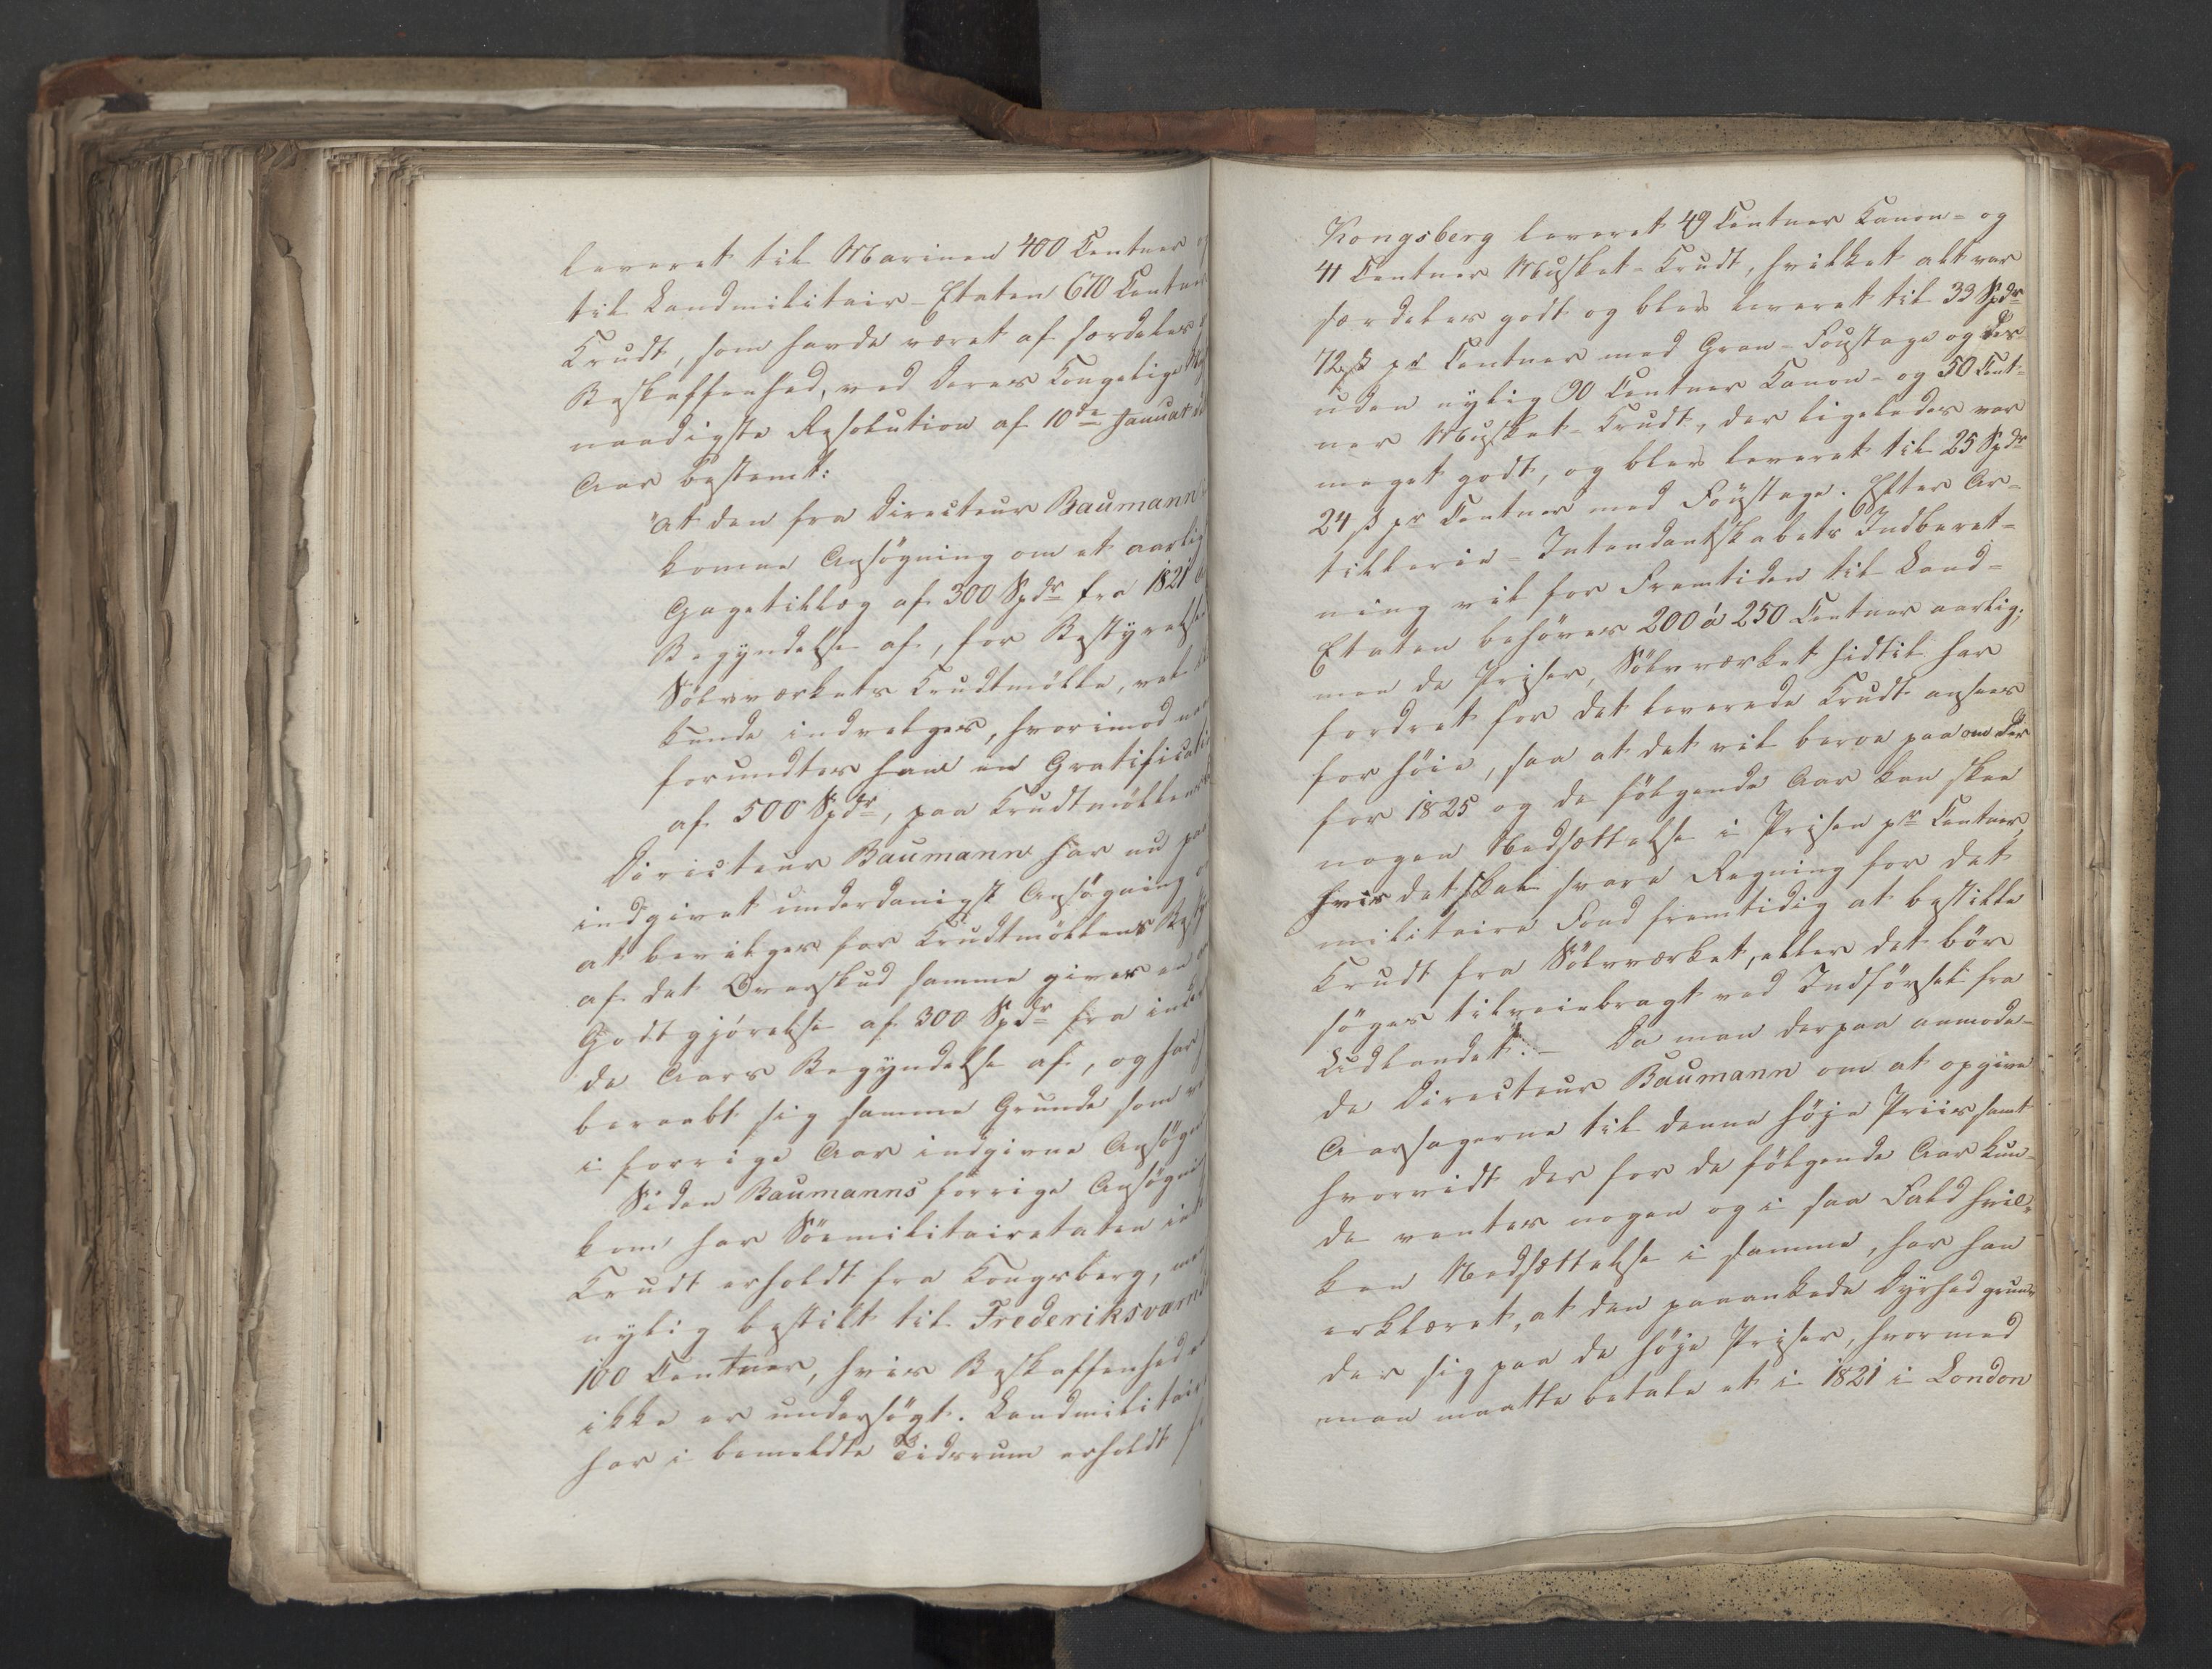 leveret til Marinen 400 Centner
til Landmilitair-Etaten 670 Centner
Krudt, som havde været af særdeles
Beskaffenhed, ved Deres Kongelige
naadigste Resolution af 10de Januar
Aar bestemt:
"at den fra Directeur Baumann
komne Ansøgning om et aarligt
Gagetillæg af 300 Spdr fra 1821
Begyndelse af, for Bestyrelse
Sølvværkets Krudtmølle, vel
kunde indvilges, hvorimod
forundtes ham en Gratification
af 500 Spdr, paa Krudtmøllens
Directeur Baumann har nu
indgivet underdanigst Ansøgning
at bevilges for Krudtmøllens
af det Overskud samme giver en
Godtgjørelse af 300 Spdr fra
de Aars Begyndelse af, og har
beraabt sig samme Grunde som
i forrige Aar indgivne
Siden Baumanns forrige
kom har Söemilitairetaten
Krudt erholdt fra Kongsberg,
nylig bestilt til Frederiksværn
100 Centner, hvis Beskaffenhed
ikke er undersøgt. Landmilitair
har i bemeldte Tidsrum erholdt
Kongsberg leveret 49 Centner Kanon- og
41 Centner Musket-Krudt, hvilket alt var
særdeles godt og blev leveret til 33 Spdr
72 ß pr Centner med Gran-Foustage og des-
uden nylig 90 Centner Kanon- og 50 Cent-
ner Musket-Krudt, der ligeledes var
meget godt, og blev leveret til 25 Spdr
24 ß pr Centner med Foustage. Efter Ar-
tillerie-Intendantskabets Indberet-
ning vil for Fremtiden til Land-
Etaten behøves 200 á 250 Centner aarlig;
men de Priser, Sölvværket hidtil har
fordret for det leverede Krudt ansees
for höie, saa at det vil beroe paa om der
for 1825 og de fölgende Aar kan skee
nogen Nedsættelse i Prisen pr Centner,
hvis det skal svare Regning for det
militaire Fond fremtidig at bestille
Krudt fra Sölvværket, eller det bör
söges tilveiebragt ved Indförsel fra
Udlandet. – Da man derpaa anmode-
de Directeur Baumann om at opgive
Aarsagerne til denne höje Priis samt
hvorvidt der for de fölgende Aar kun-
de ventes nogen og i saa Fald hvil-
ken Nedsættelse i samme, har han
erklæret, at den paaankede Dyrhed grun-
der sig paa de höje Priser, hvormed
man maatte betale et i 1821 i London